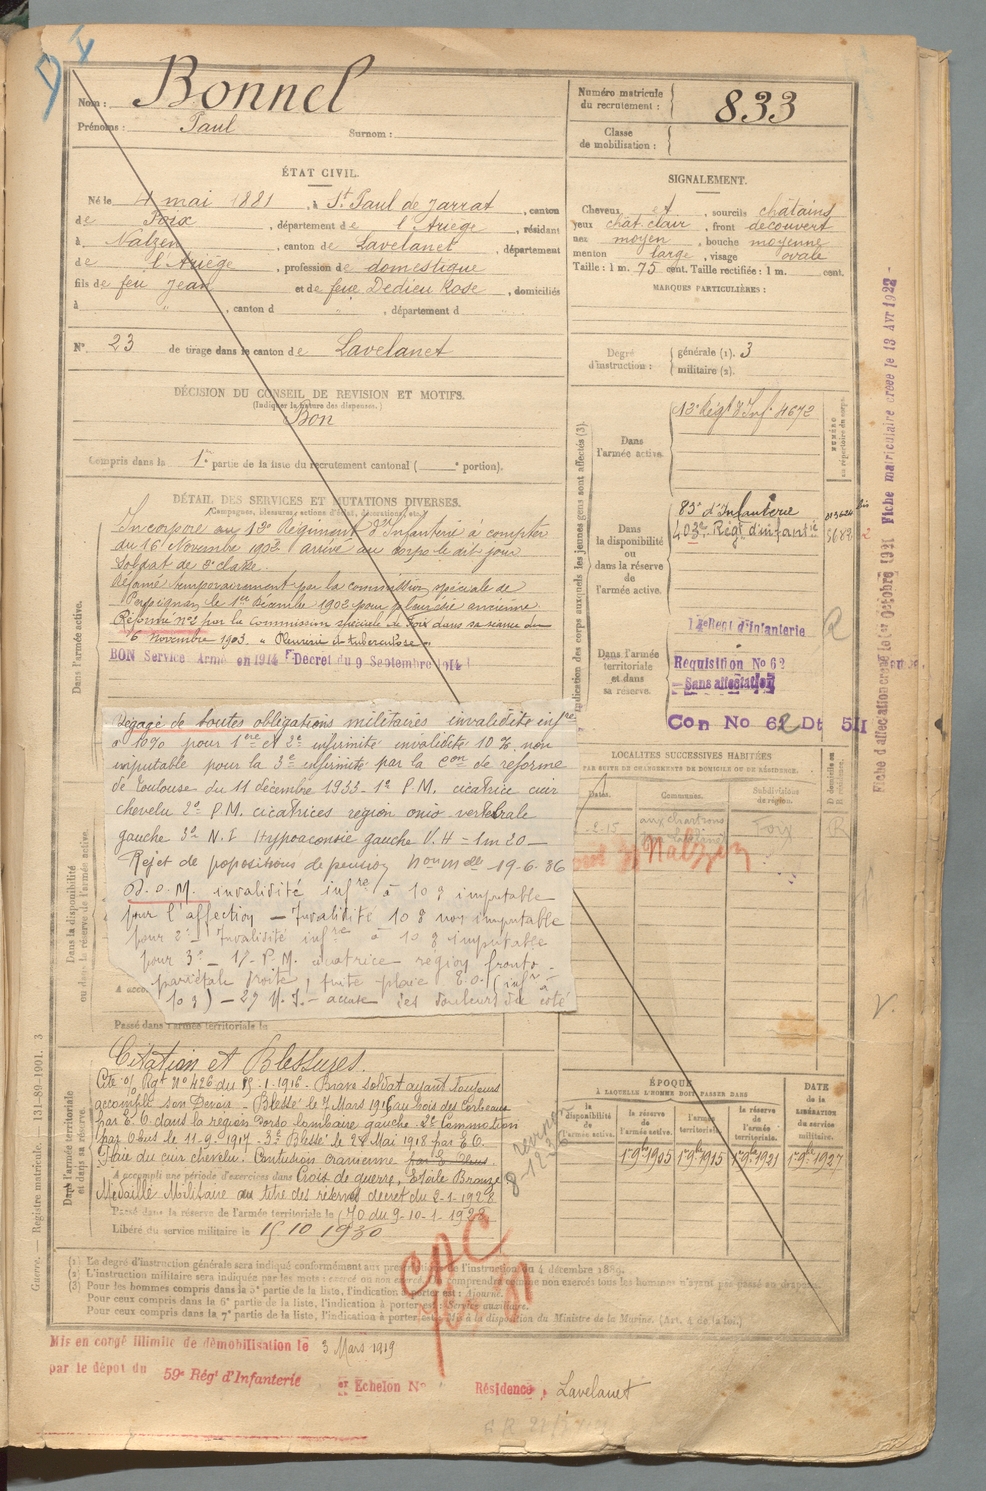 Nom : Bonnel
Prénoms : Paul Surnom :
Numéro matricule du recrutement : 833
Classe de mobilisation :
ÉTAT CIVIL.
Né le 4 mai 1881, à St Paul de Jarrat, canton
de Foix, département de l'Ariège, résidant
à Nalzen, canton de Lavelanet, département
de l'Ariège, profession de domestique
fils de feu Jean et de feue Dedieu Rose, domiciliés
à , canton d , département d
N° 23 de tirage dans le canton de Lavelanet
SIGNALEMENT.
Cheveux et, sourcils châtains
yeux chat. clair, front découvert
nez moyen, bouche moyenne
menton large, visage ovale
Taille : 1 m. 75 cent. Taille rectifiée : 1 m. cent.
MARQUES PARTICULIÈRES :
Degré d'instruction : générale (1). 3
militaire (2).
DÉCISION DU CONSEIL DE REVISION ET MOTIFS.
(Indiquer la nature des dispenses.)
Bon
Compris dans la 1re partie de la liste du recrutement cantonal ( e portion).
DÉTAIL DES SERVICES ET MUTATIONS DIVERSES.
Dans l'armée active.
Incorporé au 12e Régiment d'Infanterie à compter
du 16 Novembre 1902 arrivé au corps le dit jour
Soldat de 2e classe.
Réformé temporairement par la commission spéciale de
Perpignan le 1er Décembre 1902 pour pleurésie ancienne.
Réformé n°2 par la Commission spéciale de Foix dans sa séance du
16 Novembre 1903. "Pleurésie et tuberculose".
BON Service Armé en 1914 Décret du 9 Septembre 1914
Dégagé de toutes obligations militaires invalidité infre
à 10% pour 1ere et 2e infirmité invalidité 10 %. non
imputable pour la 3e infirmité par la Con de réforme
de Toulouse du 11 décembre 1933. 1° P.M. cicatrice cuir
chevelu 2° P.M. cicatrices region vertébrale
gauche 3° N.I Hypoacousie gauche V.H = 1m 20 —
Rejet de popositions de pension 19-6-36
invalidité infre à 10 % imputable
pour l'affection — Invalidité 10 % non imputable
pour 2° Invalidité infre à 10 % imputable
pour 3° — 1/- P.M. cicatrice région fronto
pariétale droite, petite plaie E.O. (infre à
10 %) — 2/ N.I. — accuse des douleurs du côté
Passé dans l'armée territoriale le
Dans la disponibilité ou dans la réserve de l'armée active.
Indication des corps auxquels les jeunes gens sont affectés (3).
NUMÉRO au répertoire du corps.
Dans l'armée active. 12e Régt d'Inf. 4672
Dans la disponibilité ou dans la réserve de l'armée active.
83e d'Infanterie
403e Régt d'infantie
Dans l'armée territoriale et dans sa réserve.
Regt d'infanterie
Requisition No 62
Sans affectation
Con No 62 Dt 511
LOCALITÉS SUCCESSIVES HABITÉES
PAR SUITE DE CHANGEMENTS DE DOMICILE OU DE RÉSIDENCE.
Dates. Communes. Subdivisions de région. D domicile ou R résidence.
-2-15 aux chartrons Foix R
Nalzen
Dans l'armée territoriale et dans sa réserve.
Citation et Blessures.
Cité o/ Rgt N° 426 du 15-1-1916 - Brave soldat ayant toujours
accompli son Devoir - Blessé le 7 Mars 1916 au bois des Corbeaux
par E.O. dans la region Dorso lombaire gauche. 2e Commotion
par Obus le 11.9.1917 - 3e Blessé le 28 Mai 1918 par E.O.
Plaie du cuir chevelu. Contusion cranienne
A accompli une période d'exercices dans Croix de guerre, Etoile Bronze
Médaille Militaire au titre des réserves decret du 2-1-1928
Passé dans la réserve de l'armée territoriale le (JO du 9-10-1-1928
Libéré du service militaire le 15 10 1930
ÉPOQUE
À LAQUELLE L'HOMME DOIT PASSER DANS
la disponibilité de l'armée active. la réserve de l'armée active. l'armée territoriale. la réserve de l'armée territoriale.
DATE de la LIBÉRATION du service militaire.
1er 9bre 1905 1er 9bre 1915 1er 9bre 1921 1er 9bre 1927
(1) Le degré d'instruction générale sera indiqué conformément aux prescriptions de l'instruction du 4 décembre 1889.
(2) L'instruction militaire sera indiquée par les mots : exercé ou non exercé
(3) Pour les hommes compris dans la 5e partie de la liste, l'indication à porter est : Ajourné.
Pour ceux compris dans la 6e partie de la liste, l'indication à porter est : Service auxiliaire.
Pour ceux compris dans la 7e partie de la liste, l'indication à porter est : à la disposition du Ministre de la Marine. (Art. 4 de la loi.)
Mis en congé illimité de démobilisation le 3 Mars 1919
par le dépôt du 59e Régt d'Infanterie
Echelon N° Résidence, Lavelanet
Guerre. — Registre matricule. — 131-89-1901. 3
Fiche matriculaire créée le 13 Avr 1927
Fiche d'affectation créée le 1er Octobre 1921